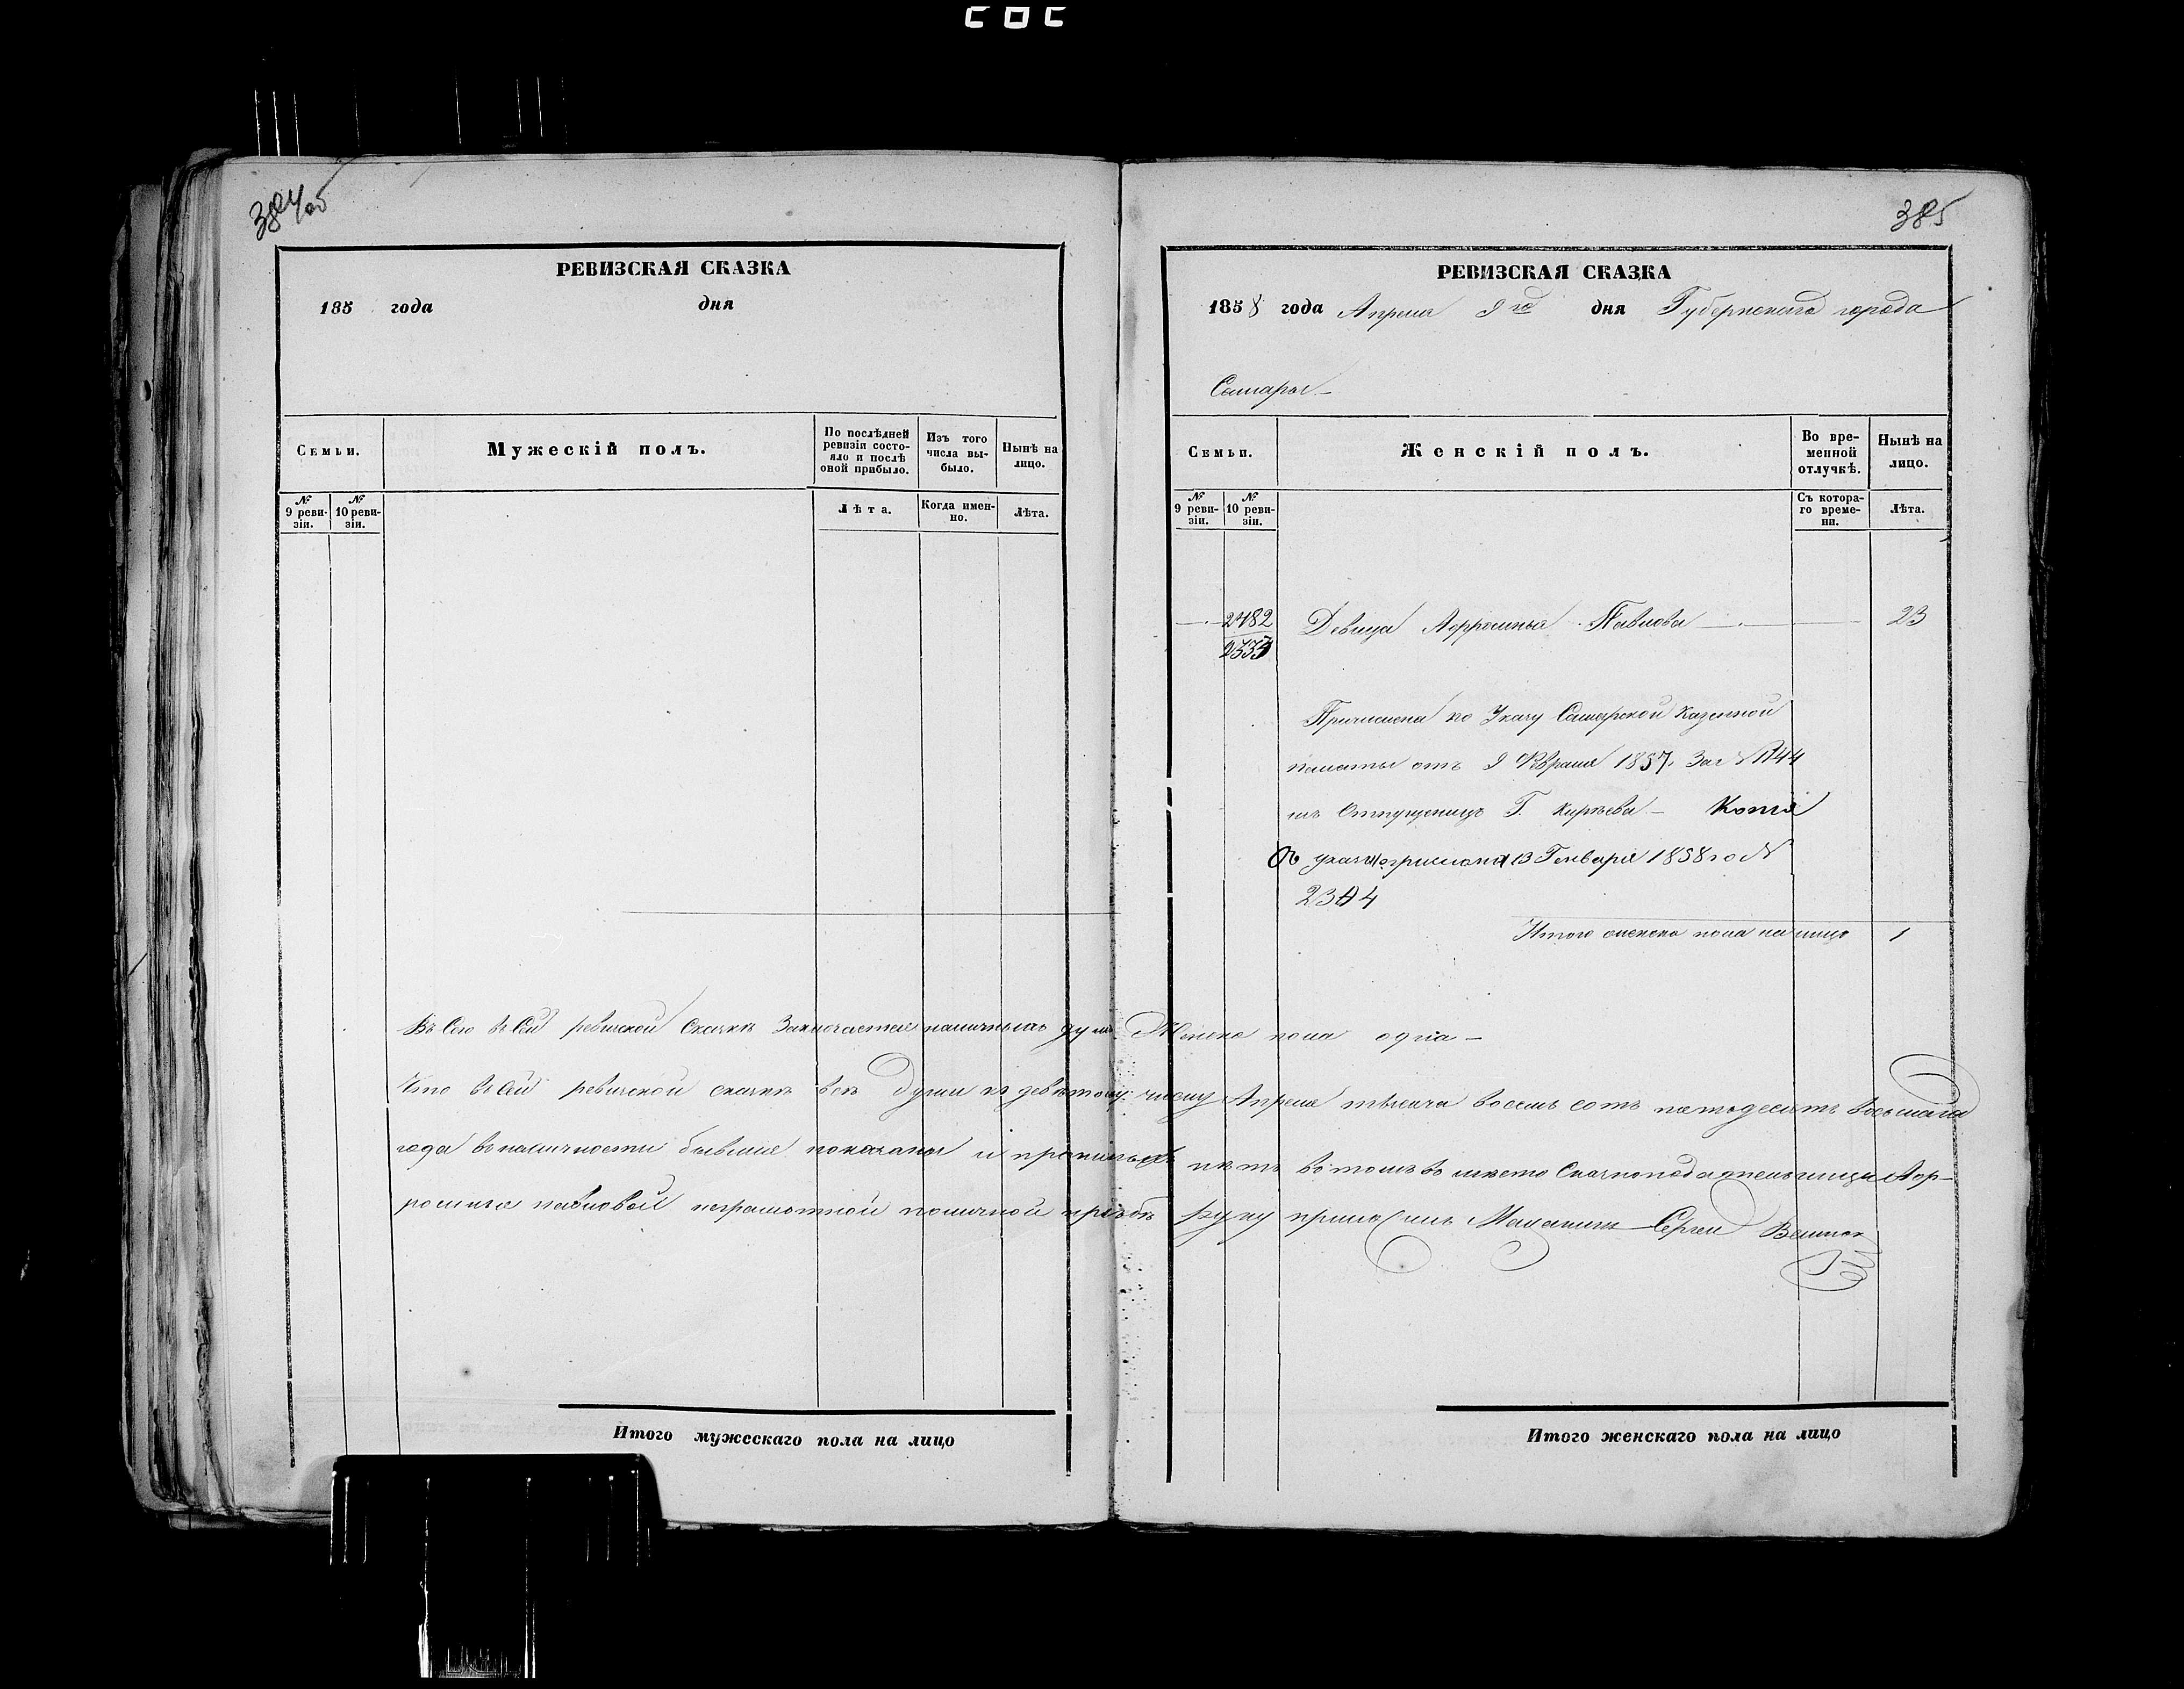 384 об
РЕВИЗСКАЯ СКАЗКА
185 года дня
Семьи.
Мужескій полъ.
По послѣдней ревизіи состояло и послѣ оной прибыло.
Изъ того числа выбыло.
Нынѣ на лицо.
№ 9 ревизіи.
№ 10 ревизіи.
Лѣта.
Когда именно.
Лѣта.
385
РЕВИЗСКАЯ СКАЗКА
1858 года Апреля 9го дня Губернскаго города
Самары
Семьи.
Женскій полъ.
Во временной отлучкѣ.
Нынѣ на лицо.
№ 9 ревизіи.
№ 10 ревизіи.
Съ котораго времени.
Лѣта.
2482 Девица Афросинья Павлова 23
2333
Причислена по Указу Самарской Казенной
палаты отъ 9 Февраля 1857. За №
изъ Г. Киреева Копія
13 Генваря 1858 го №
Итого женска пола налицо 1
Въ сей ревизской Сказкѣ Заключается наличныхъ душъ Женска пола одна
Что въ сей ревизской сказкѣ всѣ души къ девятому числу Апреля тысяча восемь сотъ пятьдесятъ восьмаго
года въ наличности бывшие показаны и прописныхъ нѣтъ въ томъ въ место Сказкоподательницы Аф-
росиньи павловой неграмотной по личной прозьбѣ Руку приложилъ Сергей
Итого мужескаго пола на лицо
Итого женскаго пола на лицо